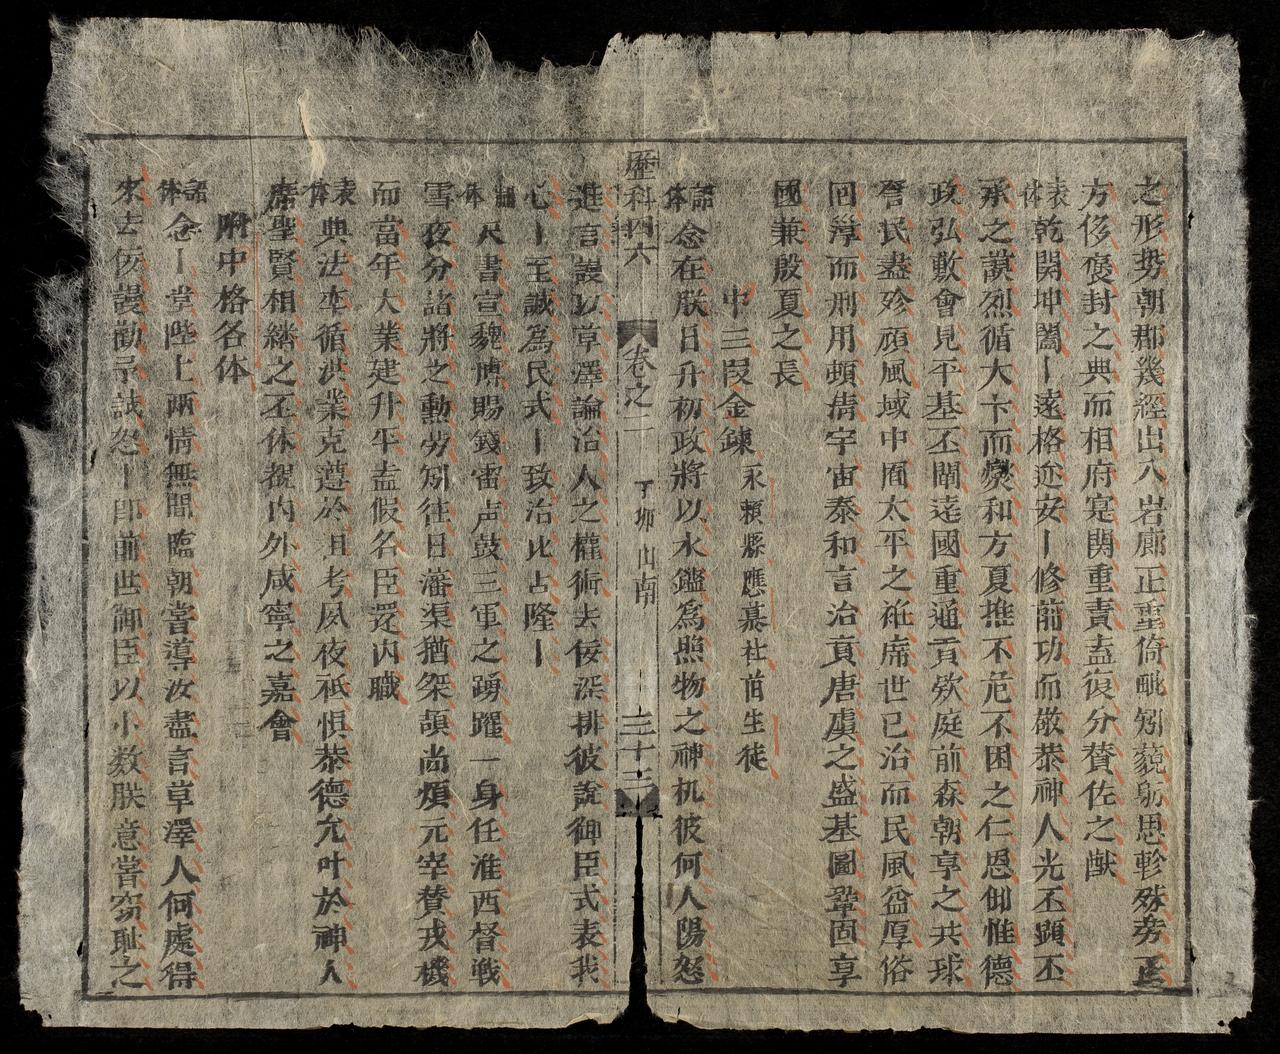 之形势朝郡幾經出入岩廊正重倚毗矧藐躬思軫殊旁
方侈褒封之典而相府寔関重責盍復分賛佐之猷
表体乾関坤闔丨遠格近安丨修前功而敬恭神人光丕顕丕
承之謨烈循大卞而爕和方夏推不危不困之仁恩仰惟德
政弘敷會見平基丕闡逹國重通貢欵庭前森朝享之共球
詧民盡殄頑風域中囿太平之袵席世已治而民風益厚俗
囬淳而刑用頓清宇宙泰和言治賁唐虞之盛基圖鞏固享
國兼殷夏之長
中三叚金鍊 永頼縣應慕社首生徒
詔体念在朕日升初政將以水鑑為照物之神机彼何人陽怒
歷科四六 卷之二 丁卯 山南 三十三
進言謾以草澤論治人之權術去佞深排彼說御臣式表我
心丨至誠為民式丨致治比占隆丨
詔体尺書宣魏博賜錢雷声鼓三軍之踴躍一身任淮西督戦
雪夜分諸將之勳勞矧往日藩渠猶桀頡尚煩元宰賛戎機
而當年大業建升平盍假名臣還内職
表体典法率循洪業克遵於且考夙夜祇惧恭德允叶於神人
席聖賢相繼之丕休覩内外咸寧之嘉會
附中格各体
詔体念丨堂陛上两情無間臨朝甞導汝盡言草澤人何處得
來去佞謾勸予試怒丨即前世御臣以小数朕意甞窃耻之